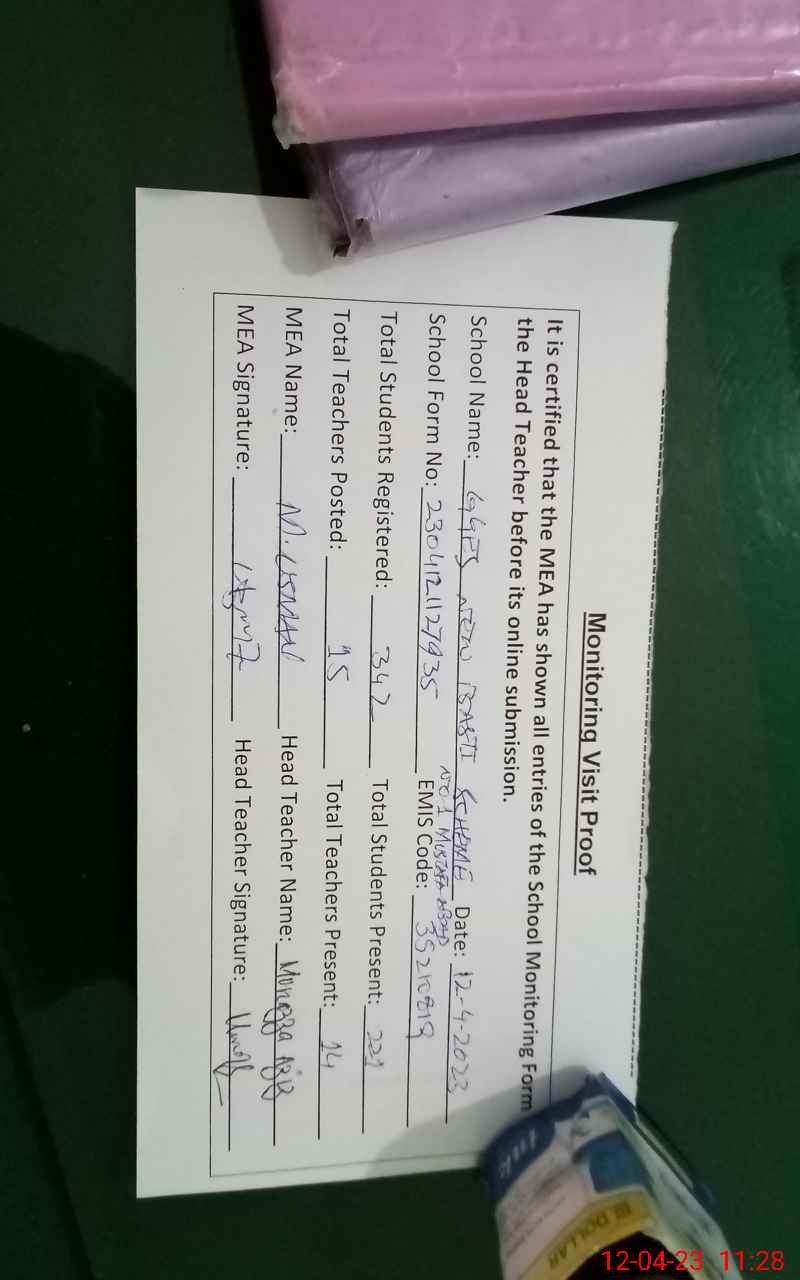 Monitoring Visit Proof
It is certified that the MEA has shown all entries of the School Monitoring Form
the Head Teacher before its online submission.
School Name: GGES NEW BASTI SCHEME Date: 12-4-2023
NO-1 MUSTAFA ABAD
School Form No: 230412112793S EMIS Code: 35210819
Total Students Registered: 342 Total Students Present: 221
Total Teachers Posted: 15 Total Teachers Present: 14
MEA Name: M. USMAN Head Teacher Name: Munazza
MEA Signature: Head Teacher Signature:
Ink
DOLLAR
12-04-23 11:28